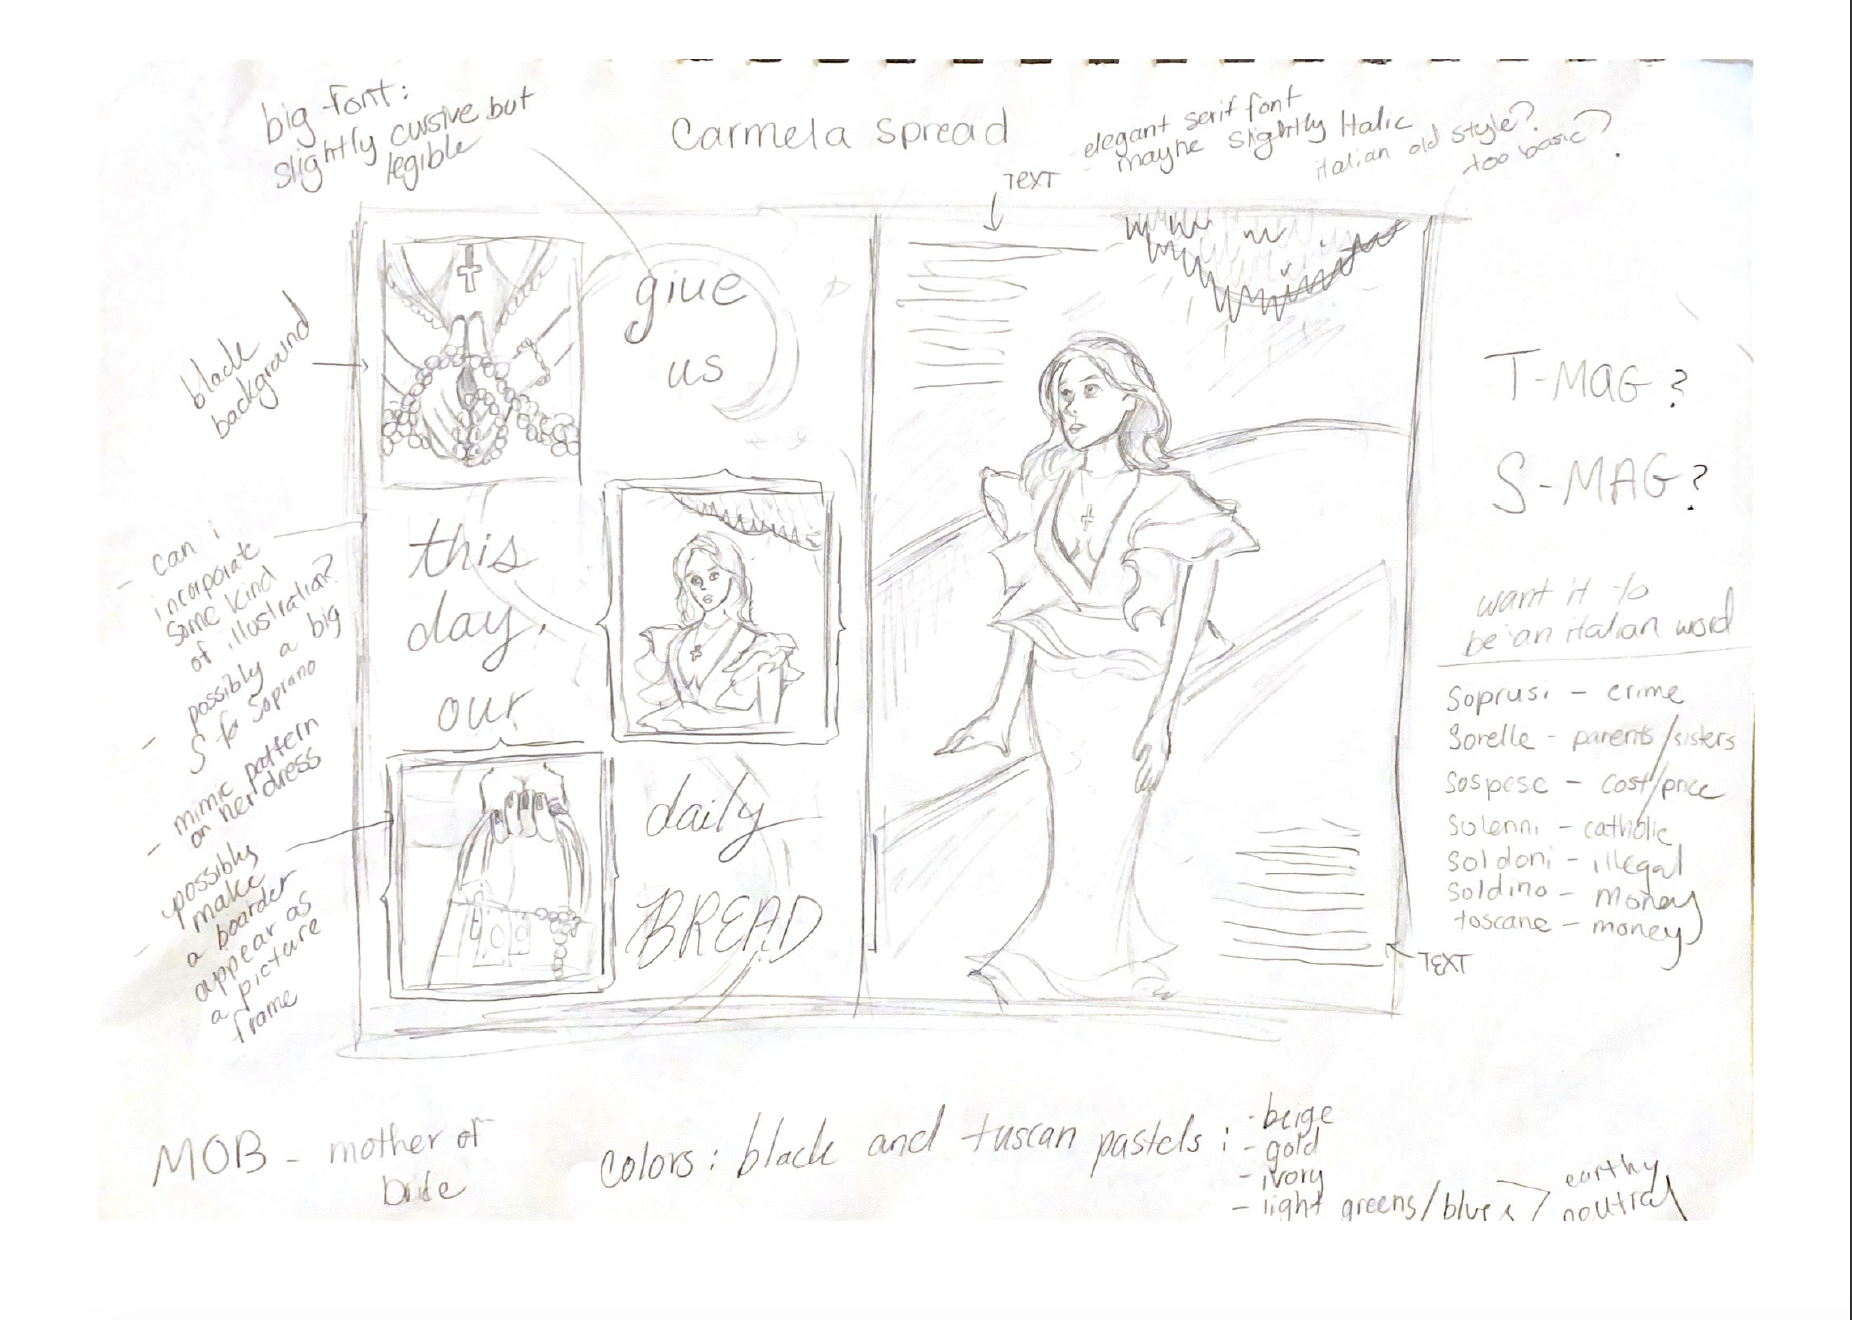 big font:
slightly cursive but
legible
Carmela spread
- elegant serif font
- maybe slightly Italic
italian old style?
too basic?
TEXT
black
background
give
us
this
day,
our
daily
BREAD
- can i
incorporate
some kind
of illustration?
- possibly a big
S for Soprano
- mimic pattern
on her dress
- possibly
make
a boarder
appear as
a picture
frame
T-MAG?
S-MAG?
want it to
be an italian word
Soprusi - crime
Sorelle - parents/sisters
Sospese - cost/price
Solenni - catholic
Soldoni - illegal
Soldino - money
toscane - money
TEXT
MOB - mother of
bride
colors: black and tuscan pastels:
- beige
- gold
- ivory
- light greens/blues
earthy
neutral